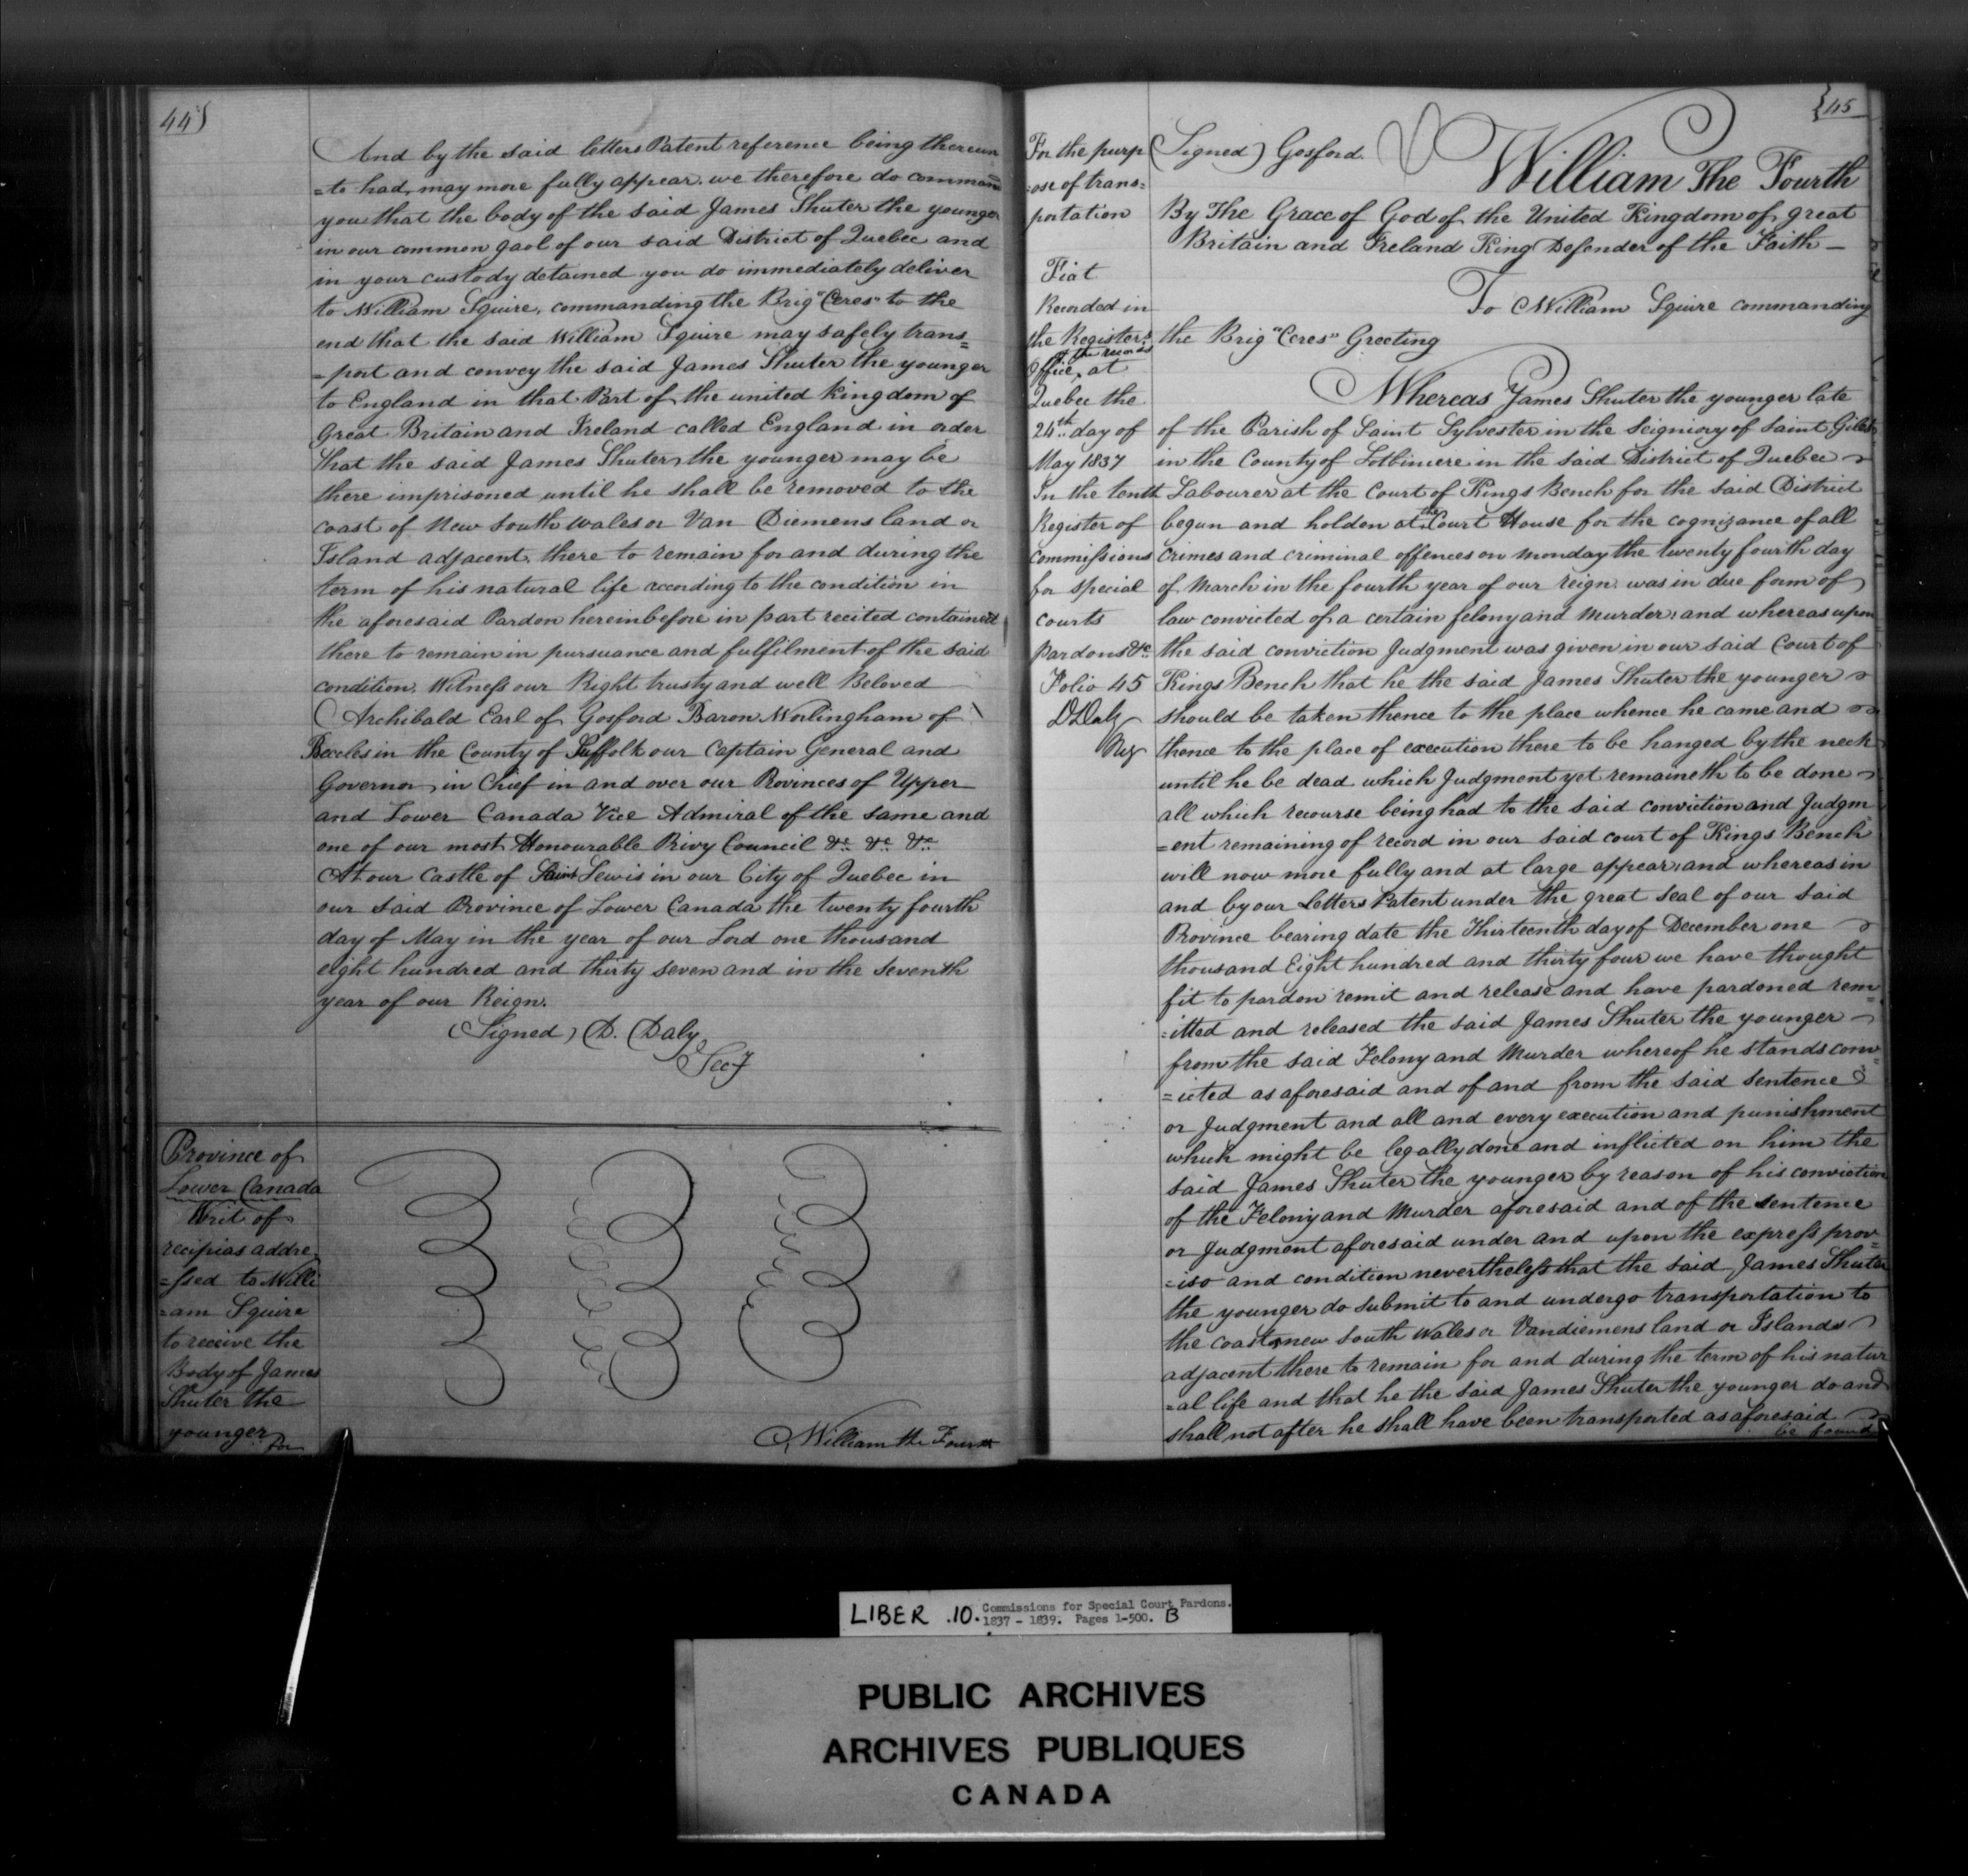 44)
And by the said letters Patent reference being thereun
=to had, may more fully appear. we therefore do command
you that the body of the said James Shuter the younger
in our common gaol of our said District of Quebec and
in your custody detained you do immediately deliver
to William Squire, commanding the Brig "Ceres" to the
end that the said William Squire may safely trans=
=port and convey the said James Shuter the younger
to England in that Part of the united kingdom of
Great Britain and Ireland called England in order
that the said James Shuter the younger may be
there imprisoned until he shall be removed to the
coast of New South Wales or Van Diemens land or
Island adjacent, there to remain for and during the
term of his natural life according to the condition in
the aforesaid Pardon hereinbefore in part recited contained
there to remain in pursuance and fulfilment of the said
condition. Witness our Right trusty and well Beloved
Archibald Earl of Gosford Baron Worlingham of
Beccles in the County of Suffolk our Captain General and
Governor in Chief in and over our Provinces of Upper
and Lower Canada Vice Admiral of the same and
one of our most Honourable Privy Council &c &c &c
At our Castle of Saint Lewis in our City of Quebec in
our said Province of Lower Canada the twenty fourth
day of May in the year of our Lord one thousand
eight hundred and thirty seven and in the seventh
year of our Reign.
(Signed) D. Daly
Secy
Province of
Lower Canada
Writ of
recipias addre
=ssed to Willi
=am Squire
to receive the
Body of James
Shuter the
younger
for
William the Fourth
45
For the purp
=ose of trans=
portation
Fiat
Recorded in
the Register
of the records
Office, at
Quebec the
24th day of
May 1837
In the tenth
Register of
Commissions
for special
courts
Pardons &c
Folio 45
D Daly
Reg
(Signed) Gosford.
William The Fourth
By The Grace of God of the United Kingdom of great
Britain and Ireland King Defender of the Faith —
To William Squire commanding
the Brig "Ceres" Greeting
Whereas James Shuter the younger late
of the Parish of Saint Sylvester in the Seigniory of Saint Giles
in the County of Lotbiniere in the said District of Quebec
Labourer at the Court of Kings Bench for the said District
begun and holden at the Court House for the cognizance of all
crimes and criminal offences on Monday the twenty fourth day
of March in the fourth year of our reign. was in due form of
law convicted of a certain felony and Murder, and whereas upon
the said conviction Judgment was given in our said Court of
Kings Bench that he the said James Shuter the younger
should be taken thence to the place whence he came and
thence to the place of execution there to be hanged by the neck
until he be dead which Judgment yet remaineth to be done
all which recourse being had to the said conviction and Judgm
=ent remaining of record in our said court of Kings Bench
will now more fully and at large appear, and whereas in
and by our Letters Patent under the great Seal of our said
Province bearing date the Thirteenth day of December one
thousand Eight hundred and thirty four we have thought
fit to pardon remit and release and have pardoned rem=
=itted and released the said James Shuter the younger
from the said Felony and Murder whereof he stands conv=
=icted as aforesaid and of and from the said sentence
or Judgment and all and every execution and punishment
which might be legally done and inflicted on him the
said James Shuter the younger by reason of his conviction
of the Felony and Murder aforesaid and of the sentence
or Judgment aforesaid under and upon the express prov=
=iso and condition nevertheless that the said James Shuter
the younger do submit to and undergo transportation to
the coast new South Wales or Vandiemens land or Islands
adjacent there to remain for and during the term of his natur
=al life and that he the said James Shuter the younger do and
shall not after he shall have been transported as aforesaid
be found
LIBER .10. Commissions for Special Court Pardons.
1837 - 1839. Pages 1-500. B
PUBLIC ARCHIVES
ARCHIVES PUBLIQUES
CANADA